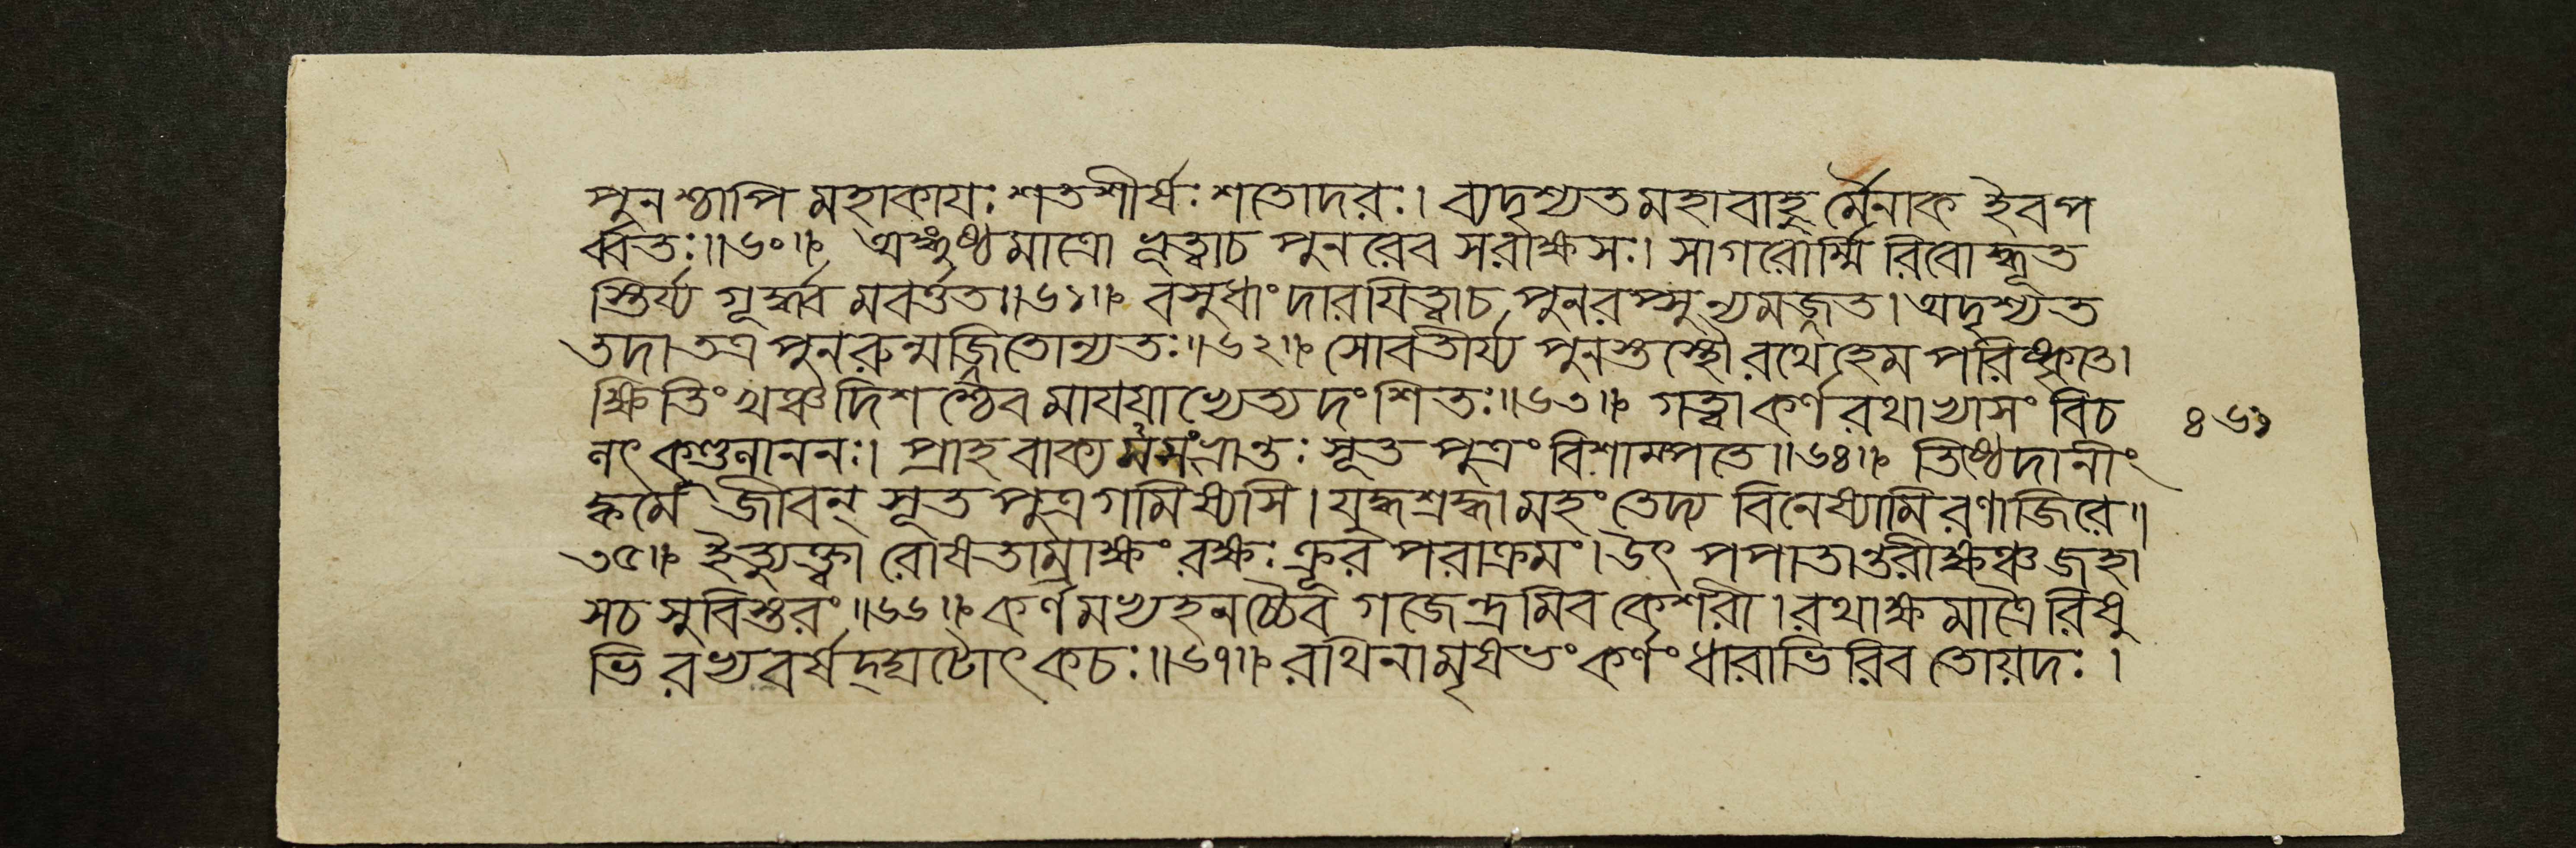 পুনশ্চাপি মহাকায়ঃ শতশীর্ষঃ শতোদরঃ। ব্যদৃশ্যত মহাবাহু র্মৈনাক ইব প
র্ব্বতঃ॥৬০॥ অঙ্গুষ্ঠমাত্রো ভূত্বাচ পুনরেব সরাক্ষসঃ। সাগরোর্ম্মিরিবোদ্ধূত
স্তির্য্যগূর্দ্ধ্বমবর্ত্তত॥৬১॥ বসুধাং দারয়িত্বাচ পুনরপ্সু ন্যমজ্জত। অদৃশ্যত
তদা তত্র পুনরুন্মজ্জিতোন্যতঃ॥৬২॥ সোবতীর্য্য পুনস্তস্থৌ রথে হেমপরিষ্কৃতে।
ক্ষিতিং খঞ্চ দিশশ্চৈব মায়য়াভ্যেত্য দংশিতঃ॥৬৩॥ গত্বা কর্ণরথাভ্যাসং বিচ
লৎ কুণ্ডলাননঃ। প্রাহ বাক্যমসংভ্রান্তঃ সূতপুত্রং বিশাম্পতে॥৬৪॥ তিষ্ঠেদানীং
ক্বমে জীবন্ সূতপুত্র গমিষ্যসি। যুদ্ধশ্রদ্ধামহং তেদ্য বিনেষ্যামি রণাজিরে॥
৬৫॥ ইত্যুক্ত্বা রোষতাম্রাক্ষং রক্ষঃ ক্রূরপরাক্রমং। উৎপপাতান্তরীক্ষঞ্চ জহা
সচ সুবিস্তরং॥৬৬॥ কর্ণমভ্যহনচ্চৈব গজেন্দ্রমিব কেশরী। রথাক্ষমাত্রৈরিষু
ভি রভ্যবর্ষদ্ঘটোৎকচঃ॥৬৭॥ রথিনামৃষভং কর্ণং ধারাভিরিব তোয়দঃ।
৪৬১